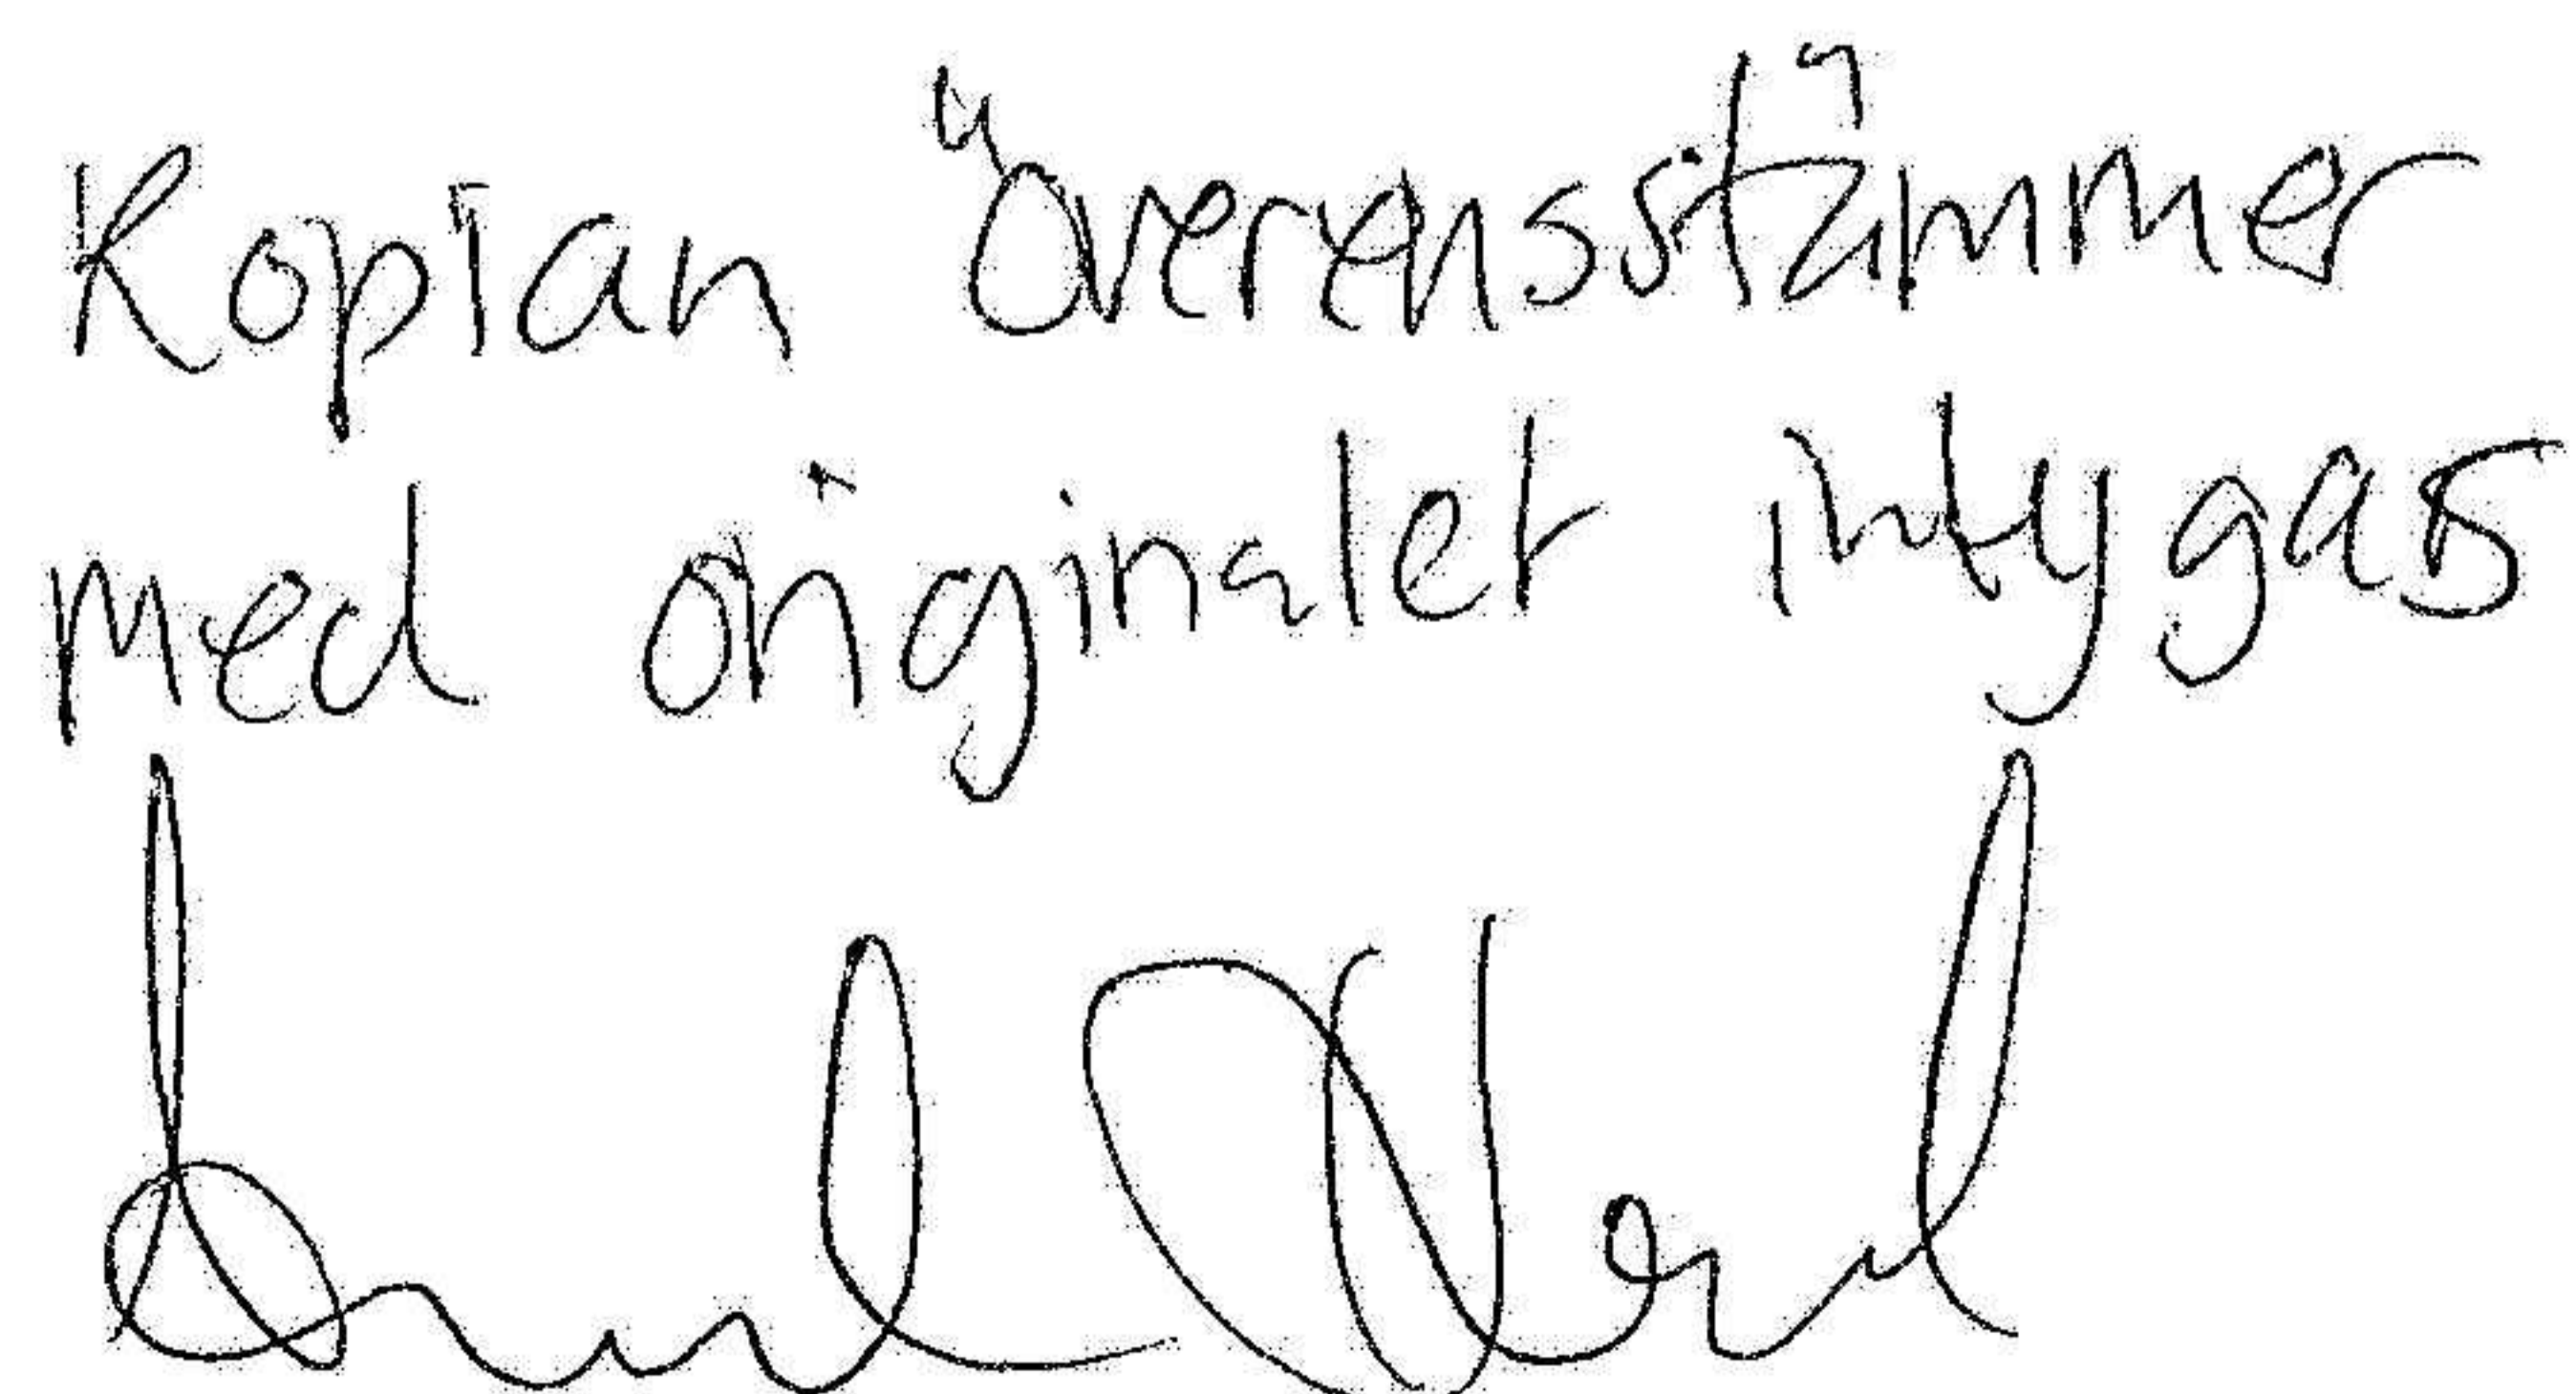 Kopian överensstämmer
med originalet intygas